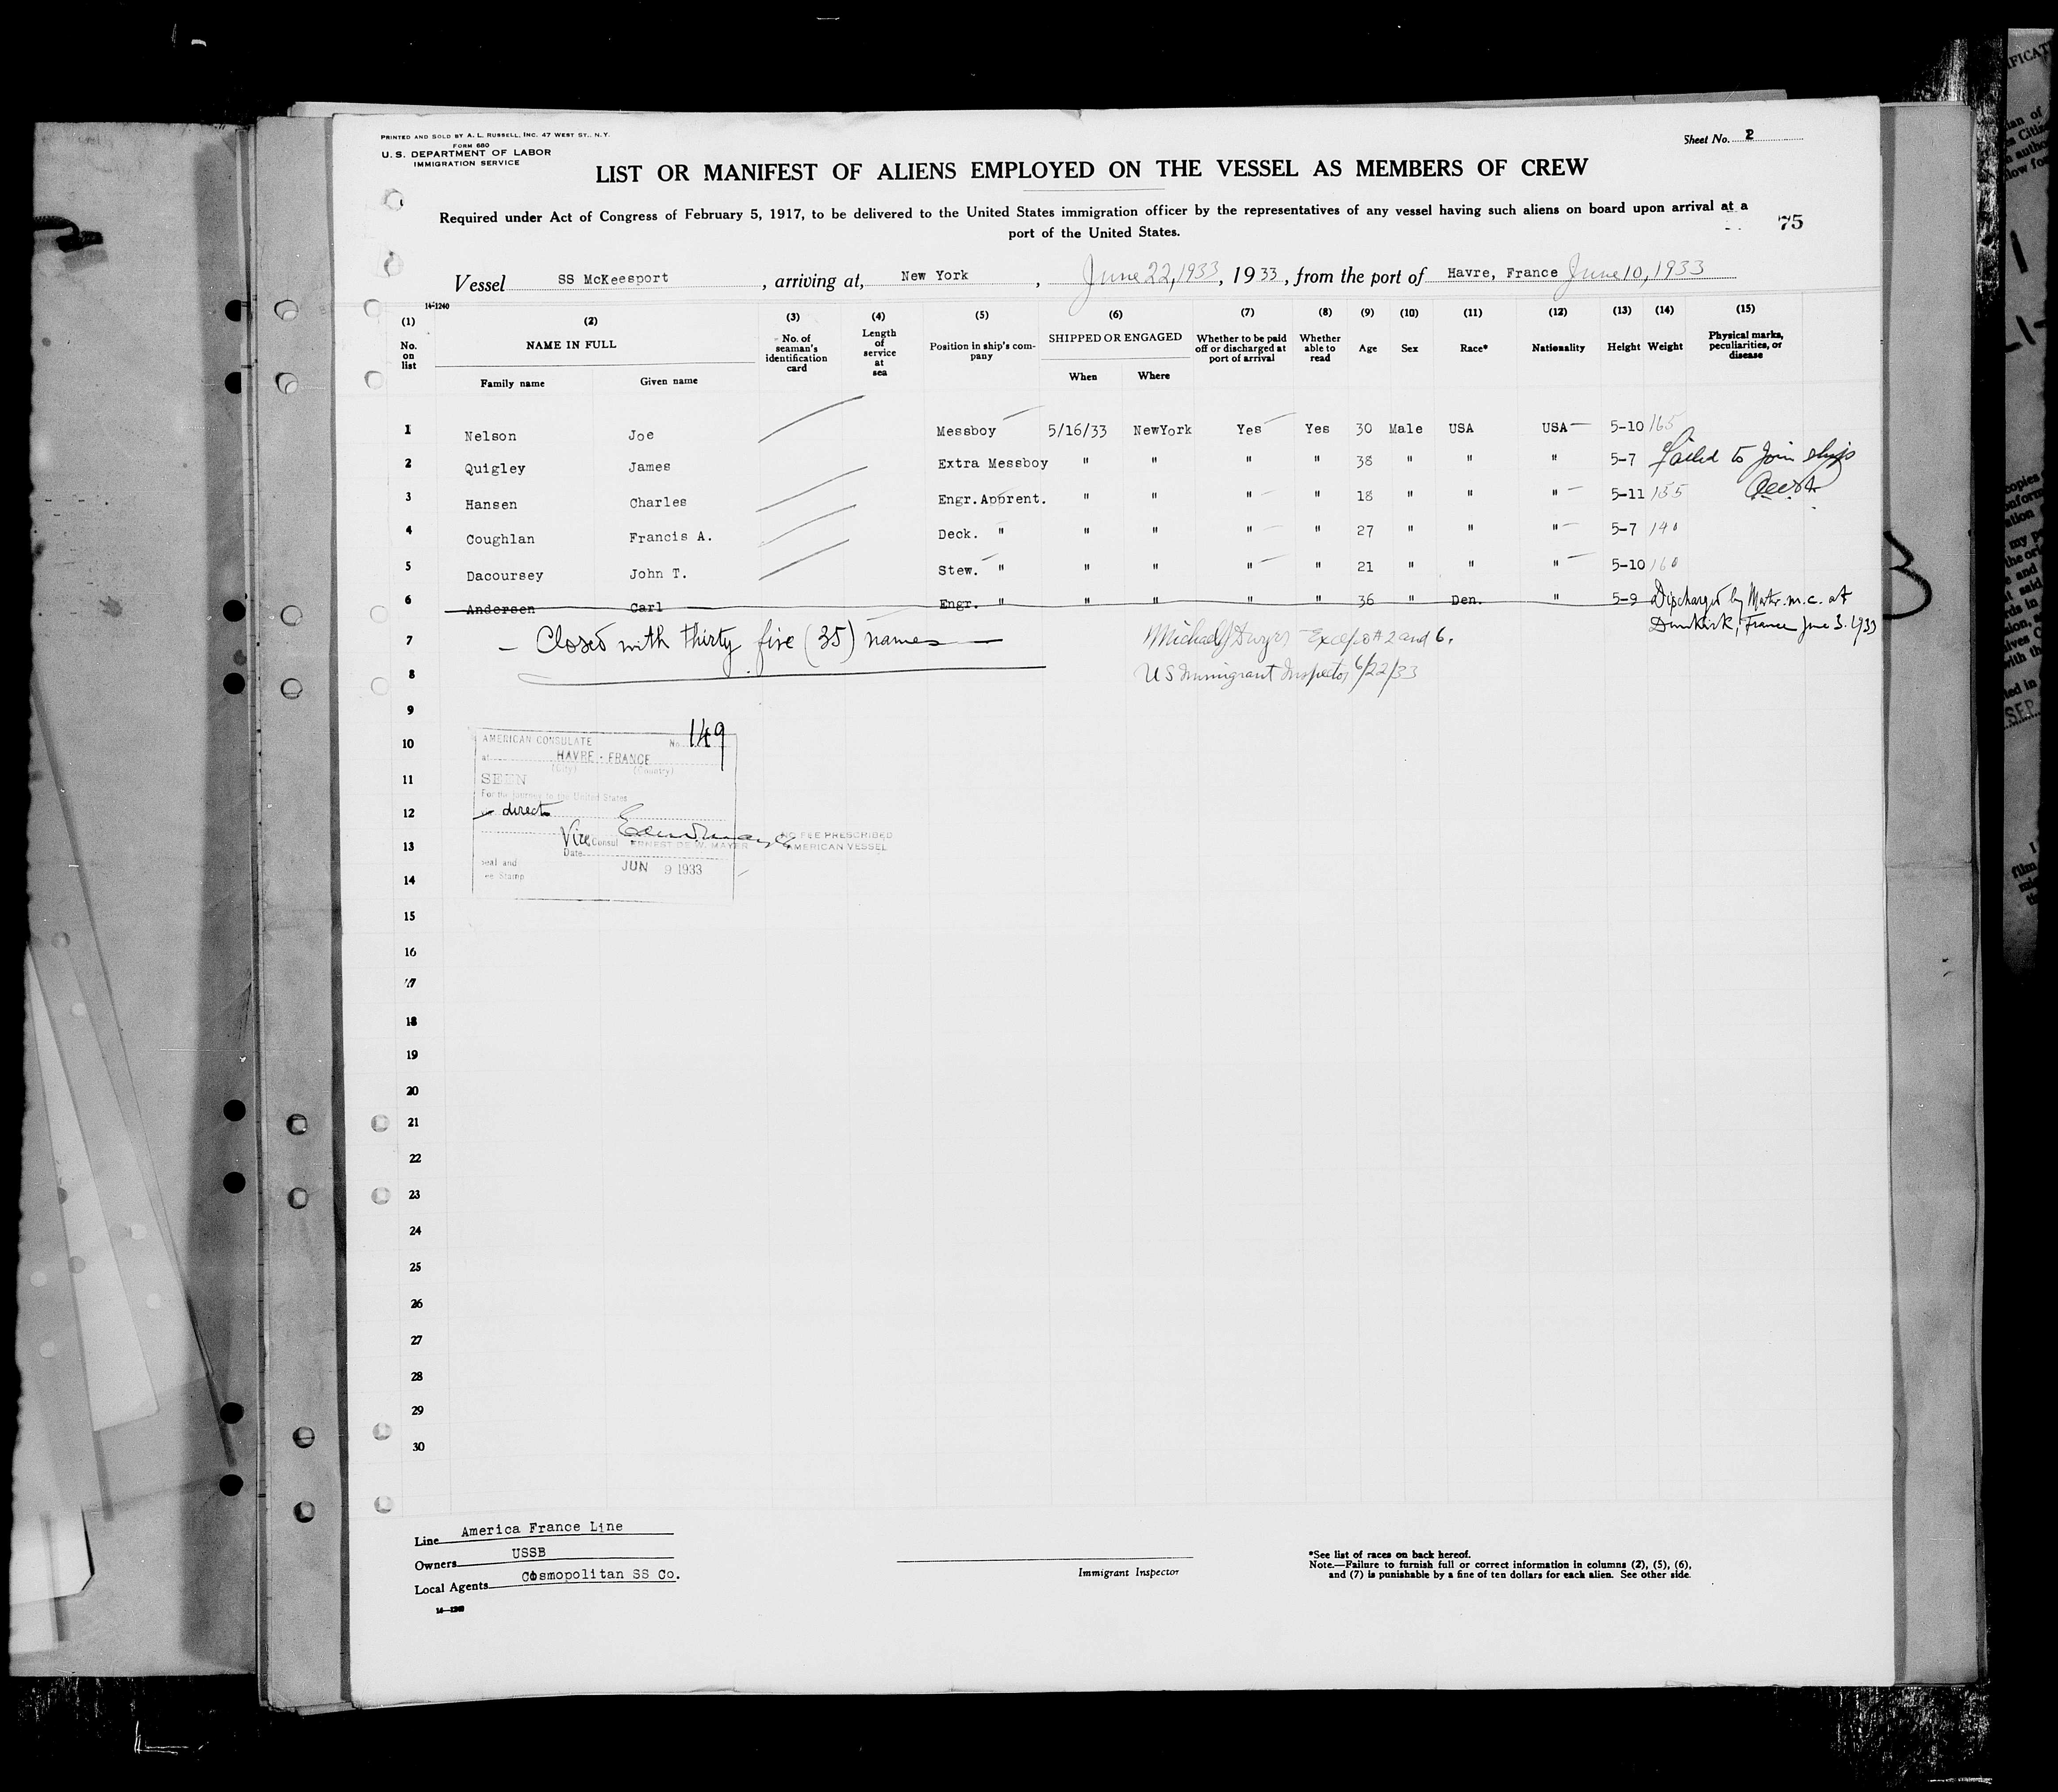 PRINTED AND SOLD BY A. L. RUSSELL, INC. 47 WEST ST., N. Y.
FORM 680
U. S. DEPARTMENT OF LABOR
IMMIGRATION SERVICE
Sheet No. 2
LIST OR MANIFEST OF ALIENS EMPLOYED ON THE VESSEL AS MEMBERS OF CREW
Required under Act of Congress of February 5, 1917, to be delivered to the United States immigration officer by the representatives of any vessel having such aliens on board upon arrival at a
port of the United States.
75
Vessel SS McKeesport , arriving at, New York , June 22, 1933 , 1933 , from the port of Havre, France June 10, 1933
14-1240
(1) (2) (3) (4) (5) (6) (7) (8) (9) (10) (11) (12) (13) (14) (15)
No. on list NAME IN FULL No. of seaman's identification card Length of service at sea Position in ship's company SHIPPED OR ENGAGED Whether to be paid off or discharged at port of arrival Whether able to read Age Sex Race* Nationality Height Weight Physical marks, peculiarities, or disease
Family name Given name When Where
1 Nelson Joe Messboy 5/16/33 NewYork Yes Yes 30 Male USA USA 5-10 165
2 Quigley James Extra Messboy " " " " 38 " " " 5-7 failed to join ship
3 Hansen Charles Engr. Apprent. " " " " 18 " " " 5-11 155
4 Coughlan Francis A. Deck. " " " " " 27 " " " 5-7 140
5 Dacoursey John T. Stew. " " " " " 21 " " " 5-10 160
6 Andersen Carl Engr. " " " " " 36 " Den. " 5-9 Discharged by Mastr. m.c. at
Dunkirk, France June 3. 1933
7 — Closed with thirty five (35) names — Michael J Dwyer Except # 2 and 6.
8 US Immigrant Inspector 6/22/33
9
10
11
12
13
14
15
16
17
18
19
20
21
22
23
24
25
26
27
28
29
30
AMERICAN CONSULATE No. 149
at HAVRE - FRANCE
(City) (Country)
SEEN
For the journey to the United States
direct
Vice Consul ERNEST DE W. MAYER
NO FEE PRESCRIBED
AMERICAN VESSEL
Date
JUN 9 1933
Seal and
Fee Stamp
Line America France Line
Owners USSB
Local Agents Cosmopolitan SS Co.
Immigrant Inspector
*See list of races on back hereof.
Note.—Failure to furnish full or correct information in columns (2), (5), (6),
and (7) is punishable by a fine of ten dollars for each alien. See other side.